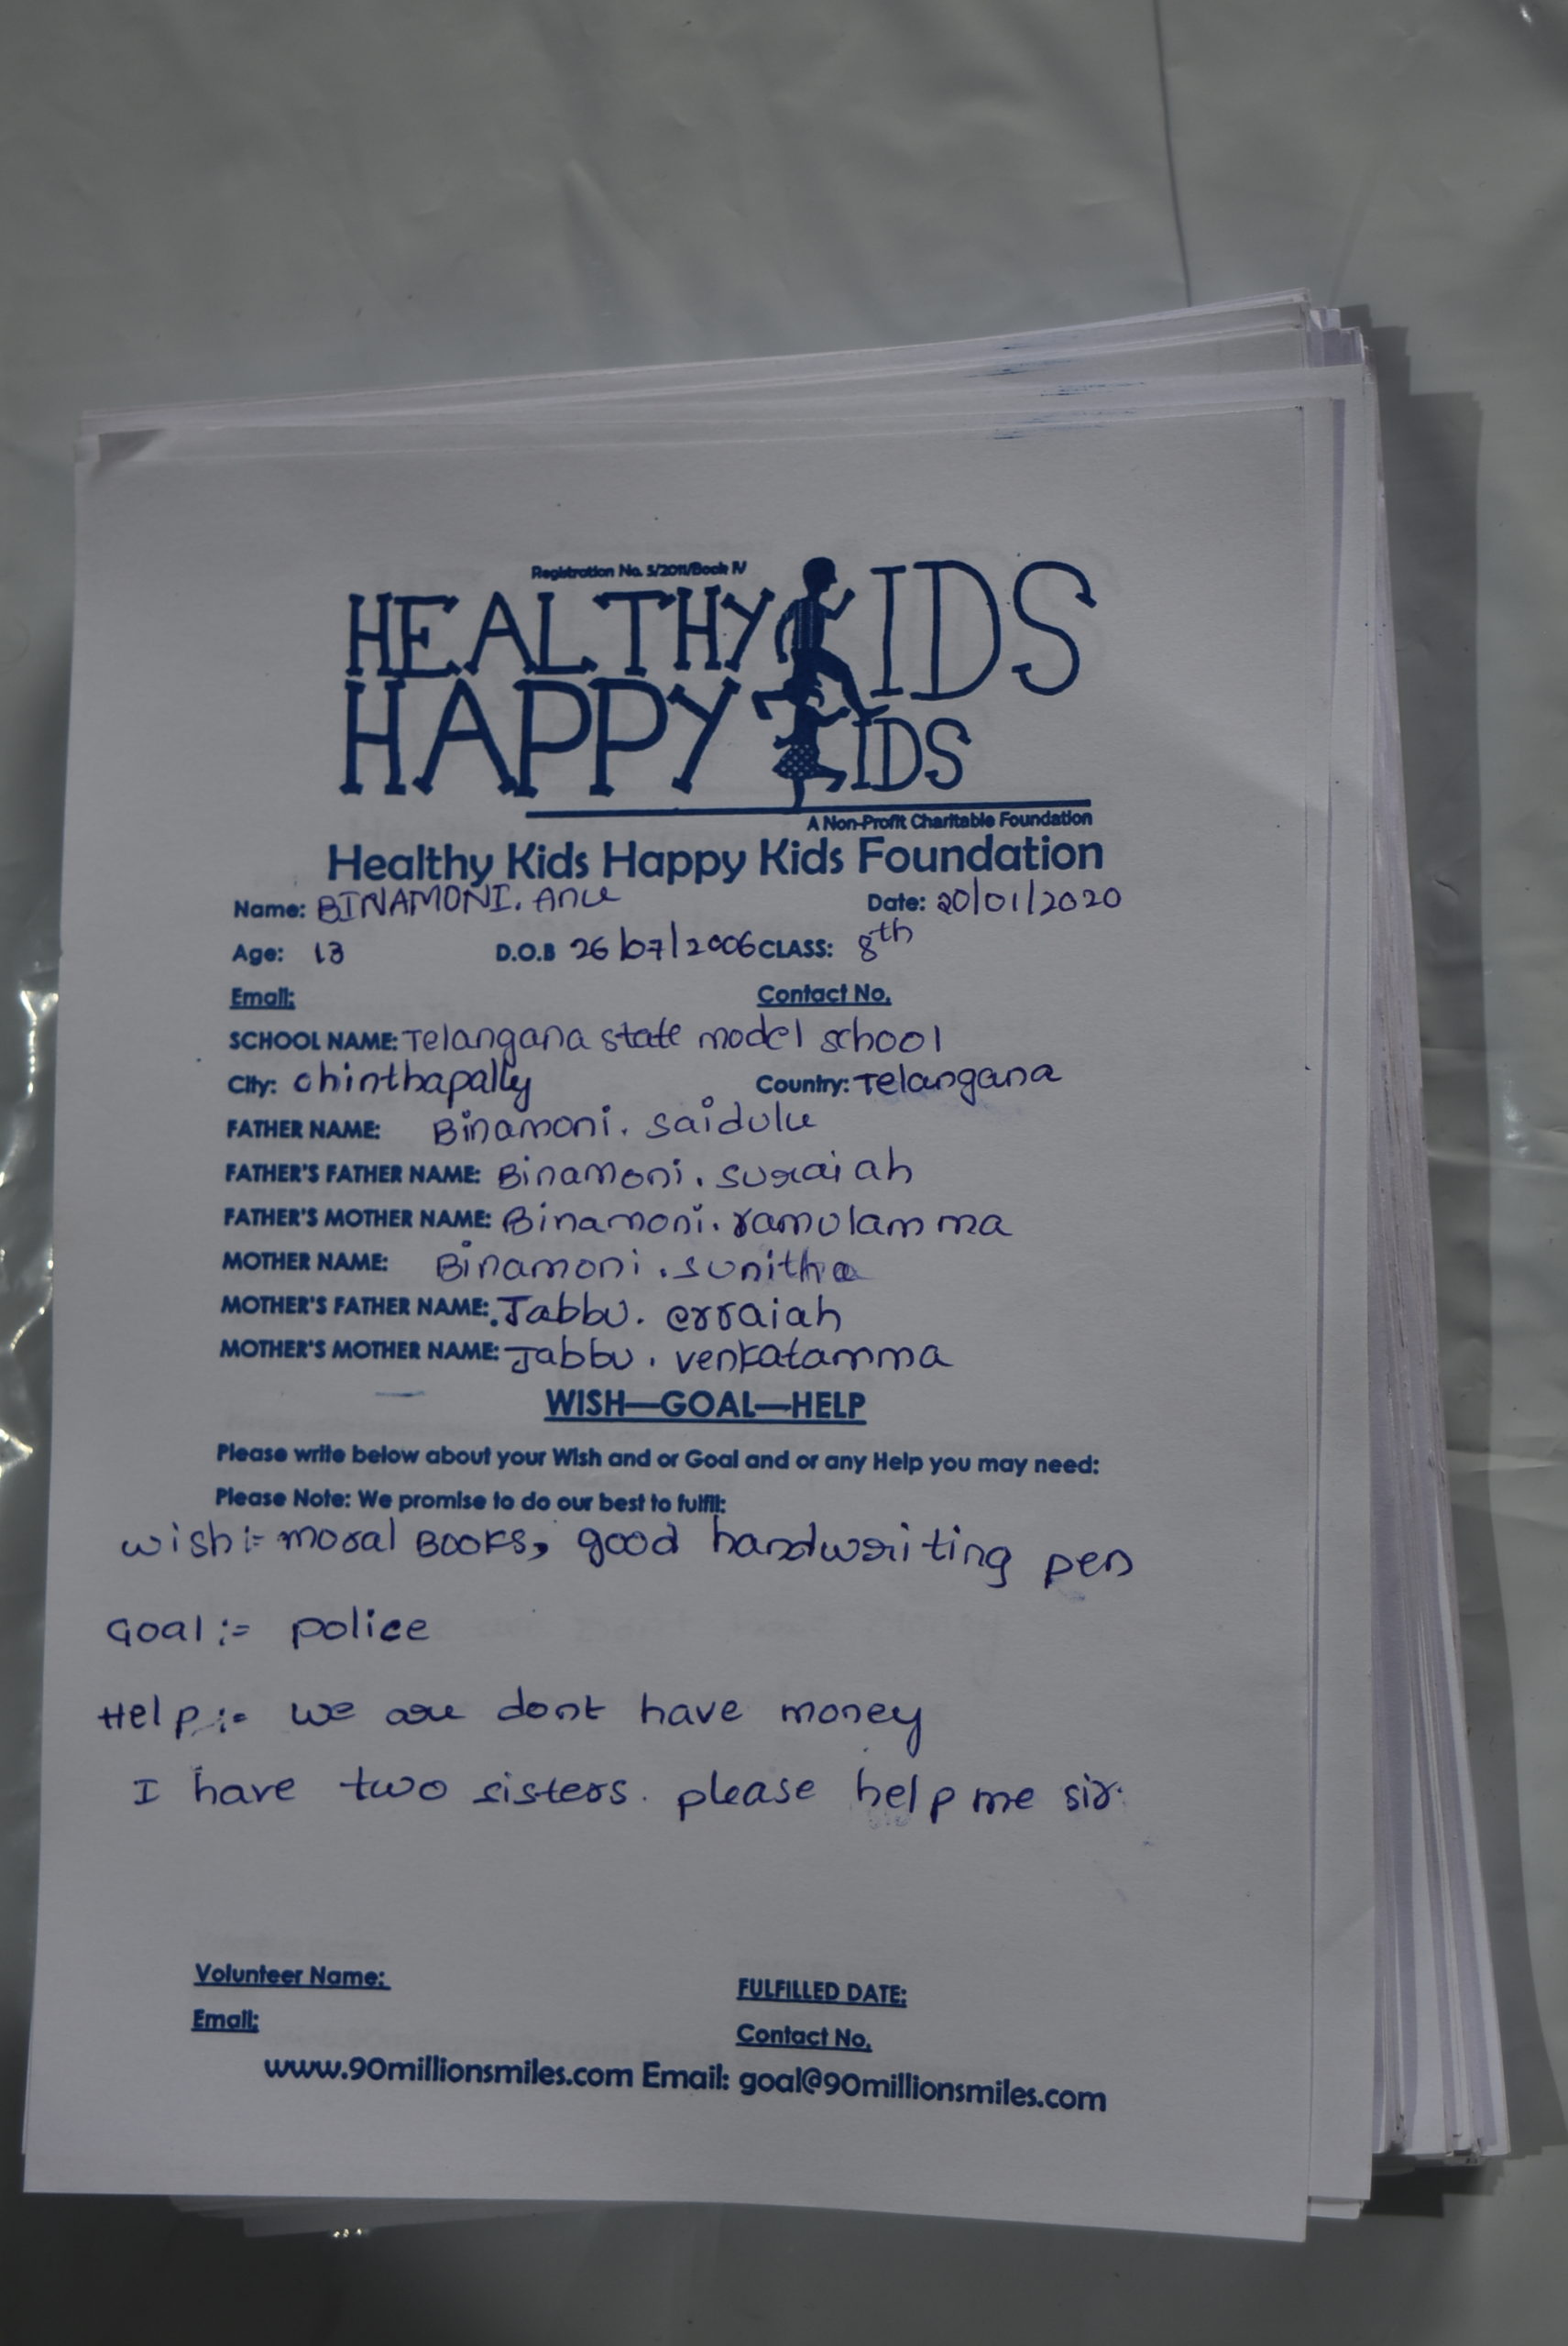 Registration No. 5/2011/Book IV
HEALTHY KIDS
HAPPY KIDS
A Non-Profit Charitable Foundation
Healthy Kids Happy Kids Foundation
Name: BINAMONI. Anu Date: 20/01/2020
Age: 13 D.O.B 26/07/2006 CLASS: 8th
Email: Contact No.
SCHOOL NAME: Telangana state model school
City: Chinthapally Country: Telangana
FATHER NAME: Binamoni. Saidulu
FATHER'S FATHER NAME: Binamoni. suraiah
FATHER'S MOTHER NAME: Binamoni. ramulamma
MOTHER NAME: Binamoni. sunitha
MOTHER'S FATHER NAME: Jabbu. erraiah
MOTHER'S MOTHER NAME: Jabbu. venkatamma
WISH—GOAL—HELP
Please write below about your Wish and or Goal and or any Help you may need:
Please Note: We promise to do our best to fulfil:
wish:- moral BOOKS, good handwriting pen
Goal:= police
Help:= we are dont have money
I have two sisters. please help me sir.
Volunteer Name: FULFILLED DATE:
Email: Contact No.
www.90millionsmiles.com Email: goal@90millionsmiles.com